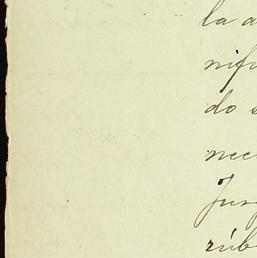 la a
nifi
do s
nece
Jus
rúb